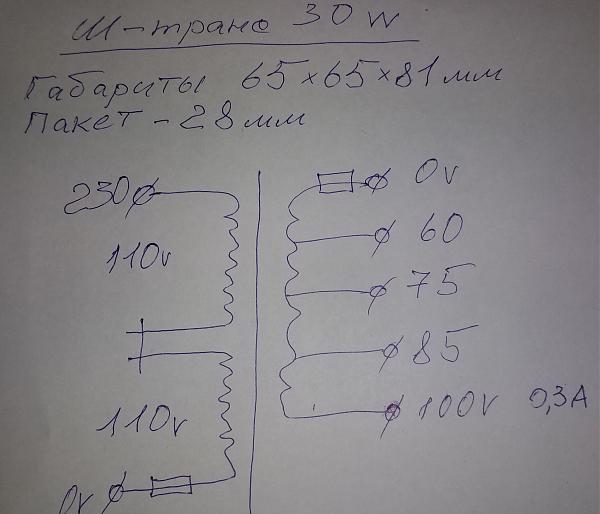 Ш-транс 30 W
Габариты 65×65×81 мм
Пакет - 28 мм
230
110v
110v
0v
0v
60
75
85
100v 0,3A